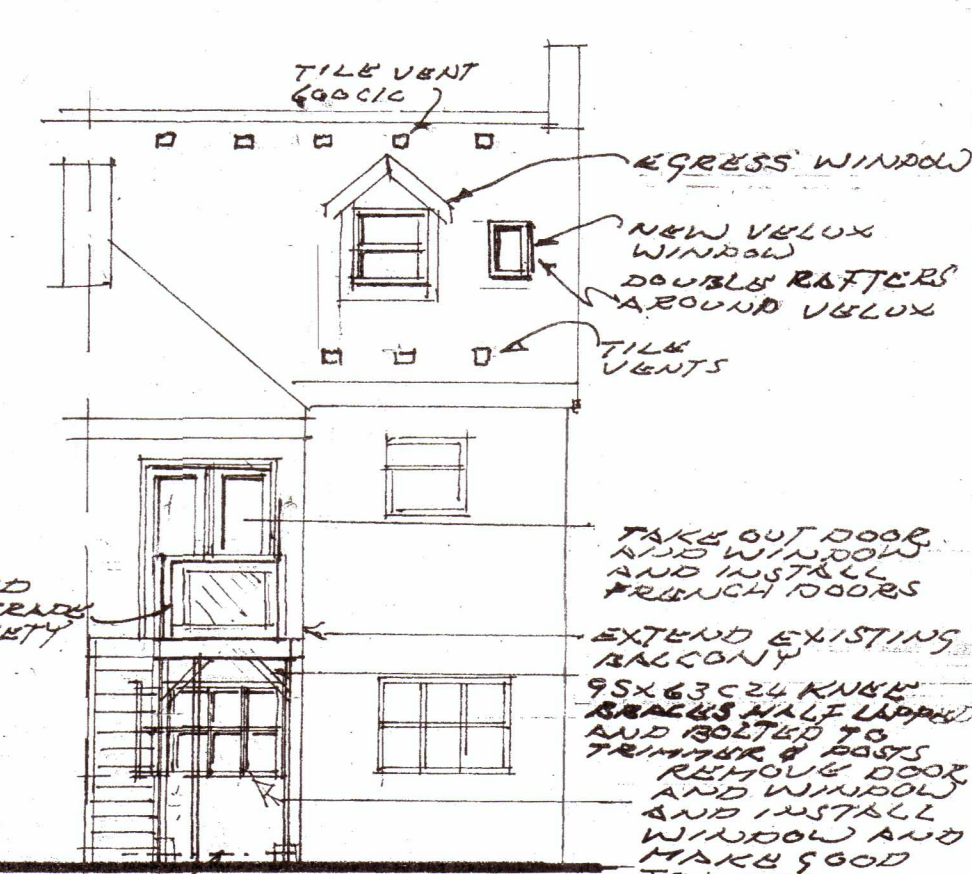 TILE VENT
600 C/C
EGRESS WINDOW
NEW VELUX
WINDOW
DOUBLE RAFTERS
AROUND VELUX
TILE
VENTS
TAKE OUT DOOR
AND WINDOW
AND INSTALL
FRENCH DOORS
EXTEND EXISTING
BALCONY
95X63 C24 KNEE
BRACES HALF LAPPED
AND BOLTED TO
TRIMMER & POSTS
REMOVE DOOR
AND WINDOW
AND INSTALL
WINDOW AND
MAKE GOOD